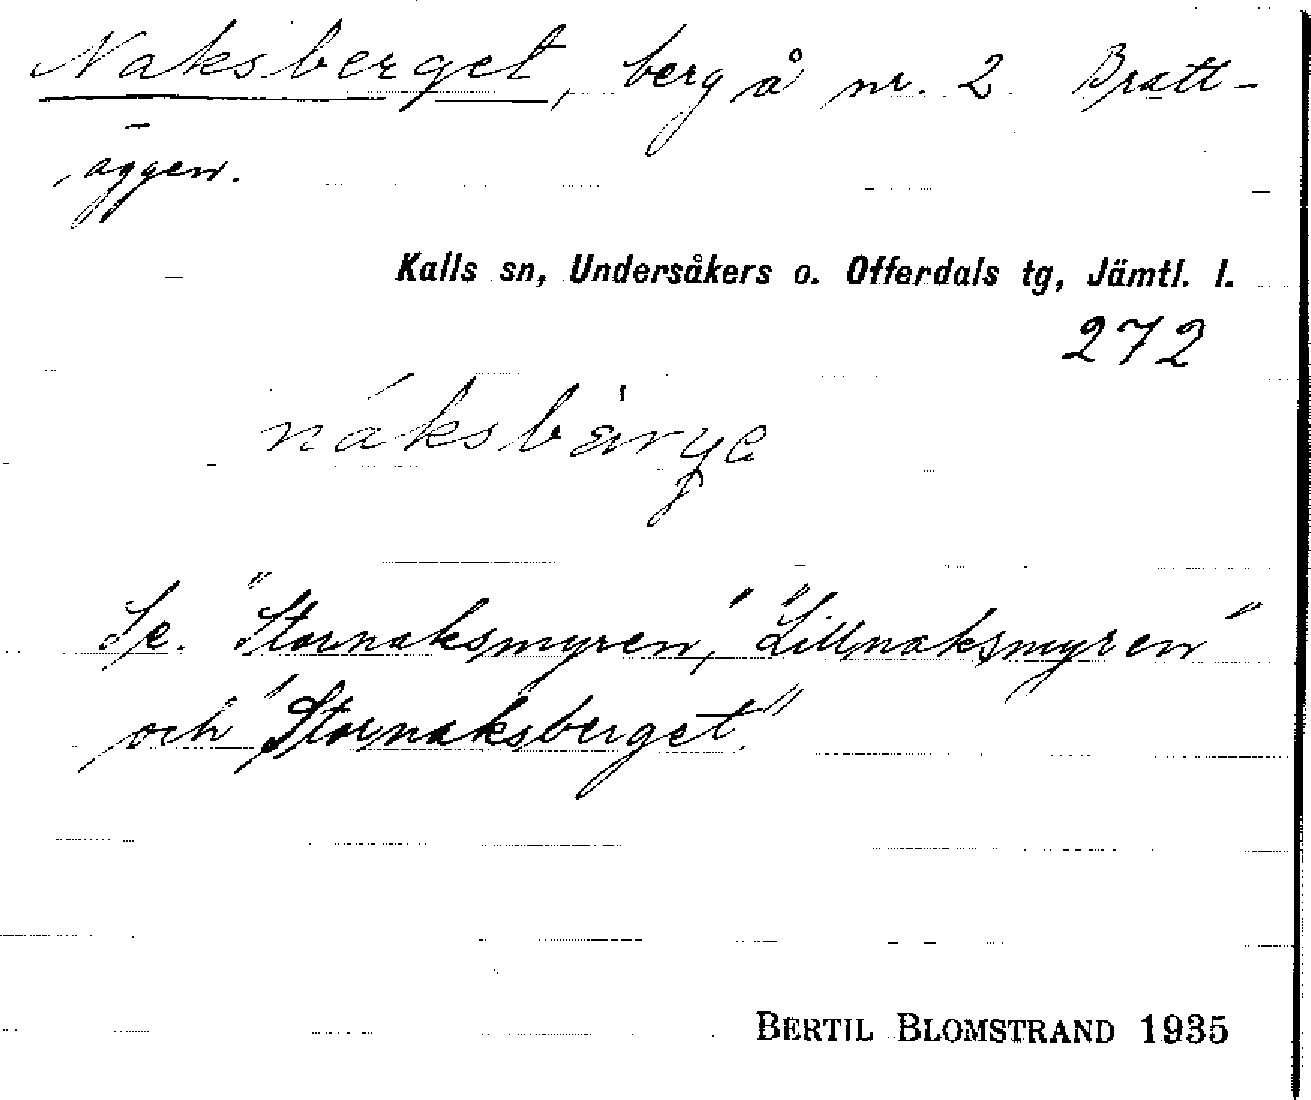 Naksberget, berg å nr. 2 Bratt-
äggen.
Kalls sn, Undersåkers o. Offerdals tg, Jämtl. l.
272
Se. "Stornaksmyren," "Lillnaksmyren"
och "Stornaksberget."
BERTIL BLOMSTRAND 1935